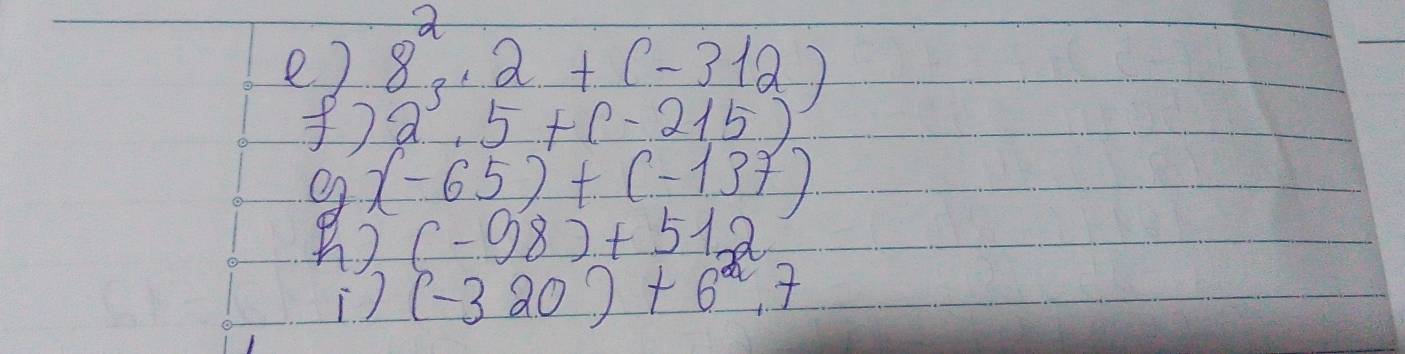 e) 8² . 2 + (-312)
f) 2³ . 5 + (-215)
g) (-65) + (-137)
h) (-98) + 512
i) (-320) + 6² . 7